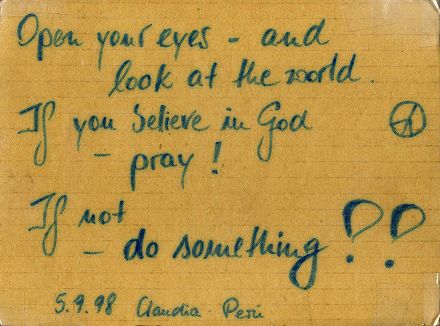 Open your eyes - and
look at the world.
If you believe in God
- pray!
If not
- do something!!
5.9.98 Claudia